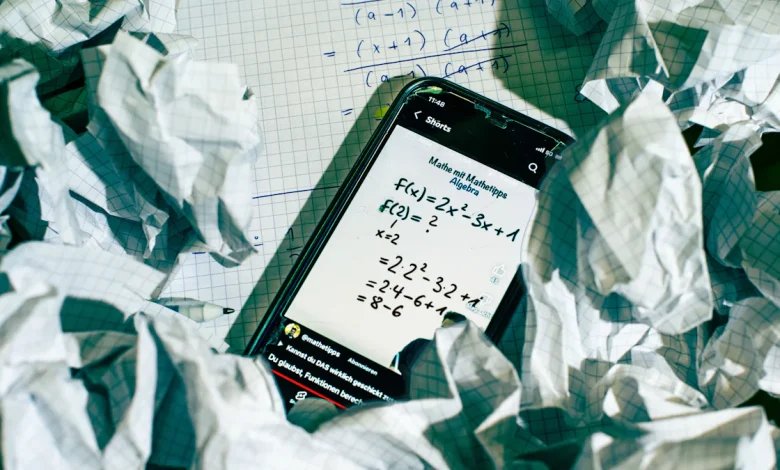 (a-1) (a+1)
= (x+1) (a+1)
(a-1) (a+1)
=
11:48
Shorts
Mathe mit Mathetipps
Algebra
f(x)=2x²-3x+1
f(2)= ?
x=2
=2·2²-3·2+1
=2·4-6+1
=8-6
@mathetipps Abonnieren
Kennst du DAS wirklich geschickt zu
Du glaubst, Funktionen berec